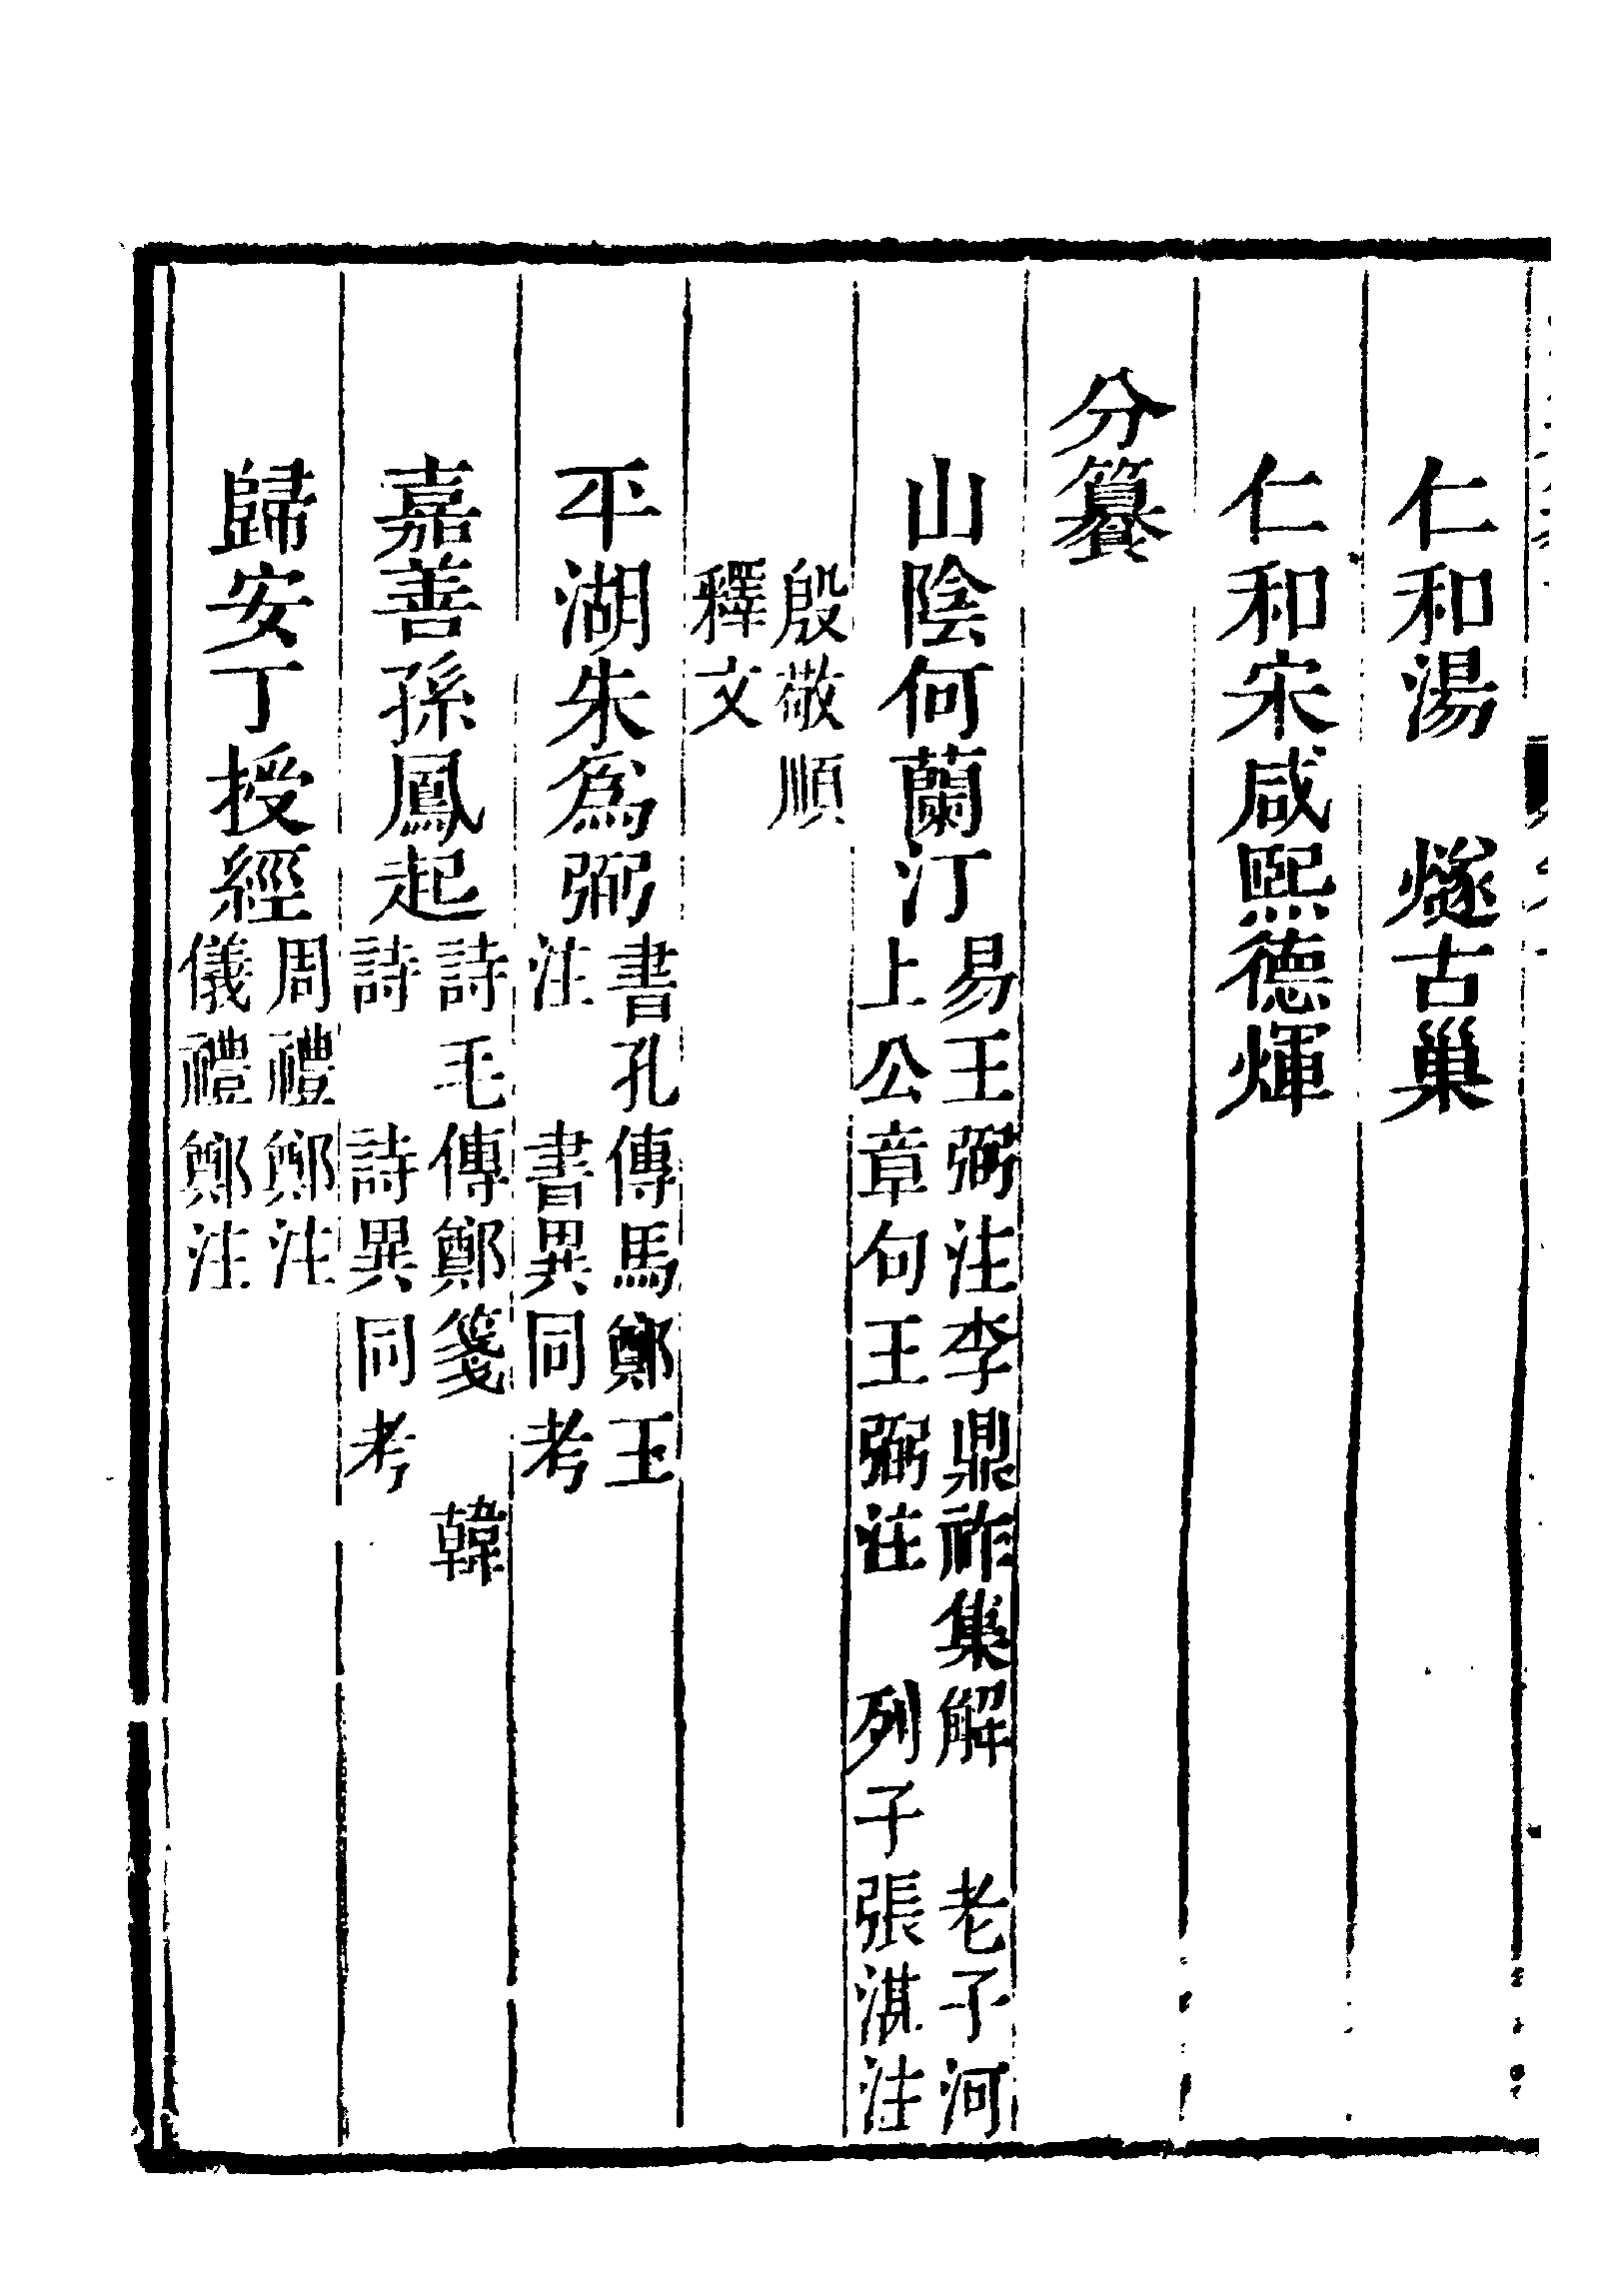 仁和湯　燧古巢
仁和宋咸熙德煇
分籑
山陰何蘭汀
易王弼注李鼎祚集解　老子河
上公章句王弼注　列子張湛注
殷敬順
釋文
平湖朱為弼
書孔傳馬鄭王
注　書異同考
嘉善孫鳳起
詩毛傳鄭箋　韓
詩　詩異同考
歸安丁授經
周禮鄭注
儀禮鄭注